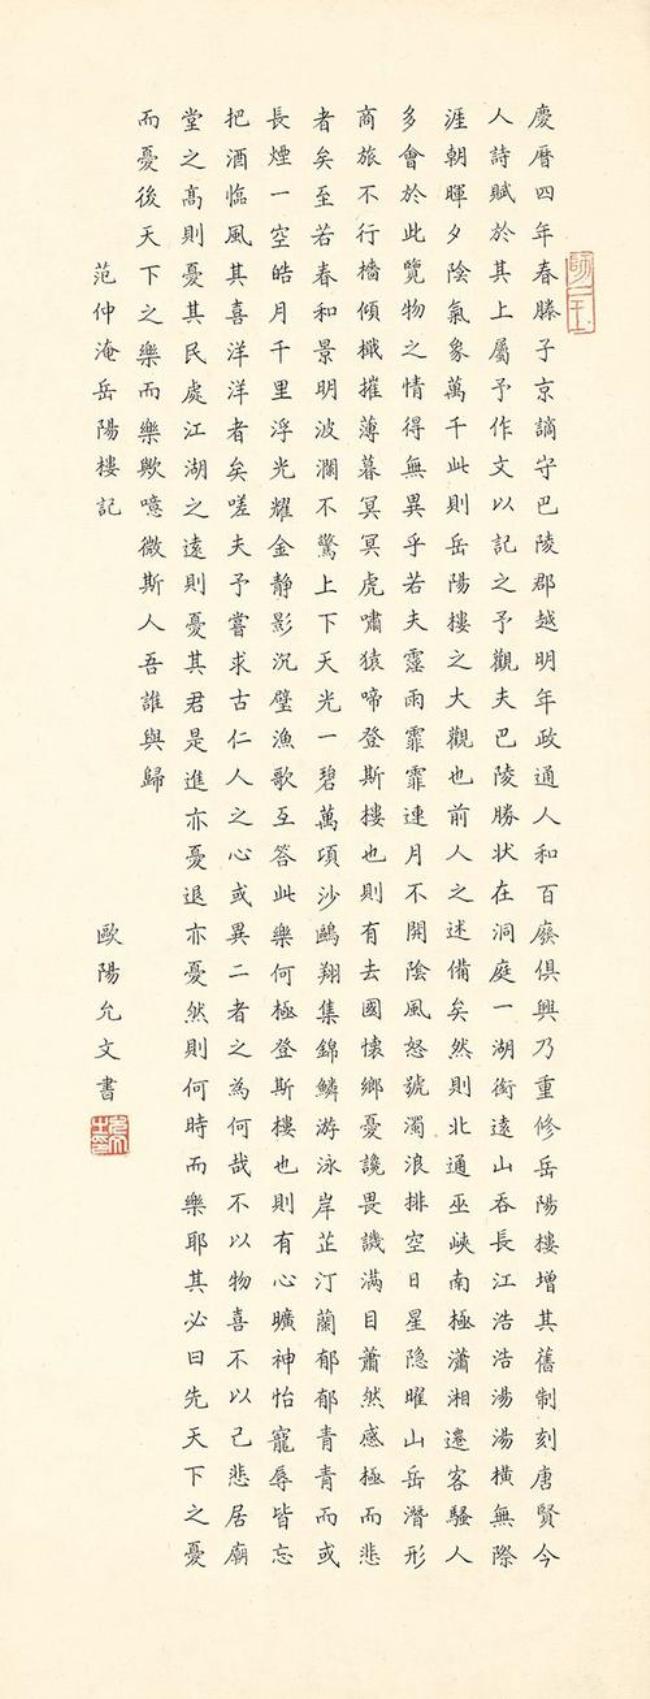 慶曆四年春滕子京謫守巴陵郡越明年政通人和百廢俱興乃重修岳陽樓增其舊制刻唐賢今
人詩賦於其上屬予作文以記之予觀夫巴陵勝狀在洞庭一湖銜遠山吞長江浩浩湯湯橫無際
涯朝暉夕陰氣象萬千此則岳陽樓之大觀也前人之述備矣然則北通巫峽南極瀟湘遷客騷人
多會於此覽物之情得無異乎若夫霪雨霏霏連月不開陰風怒號濁浪排空日星隱曜山岳潛形
商旅不行檣傾檝摧薄暮冥冥虎嘯猿啼登斯樓也則有去國懷鄉憂讒畏譏滿目蕭然感極而悲
者矣至若春和景明波瀾不驚上下天光一碧萬頃沙鷗翔集錦鱗游泳岸芷汀蘭郁郁青青而或
長煙一空皓月千里浮光耀金靜影沉璧漁歌互答此樂何極登斯樓也則有心曠神怡寵辱皆忘
把酒臨風其喜洋洋者矣嗟夫予嘗求古仁人之心或異二者之為何哉不以物喜不以己悲居廟
堂之高則憂其民處江湖之遠則憂其君是進亦憂退亦憂然則何時而樂耶其必曰先天下之憂
而憂後天下之樂而樂歟噫微斯人吾誰與歸
范仲淹岳陽樓記
歐陽允文書